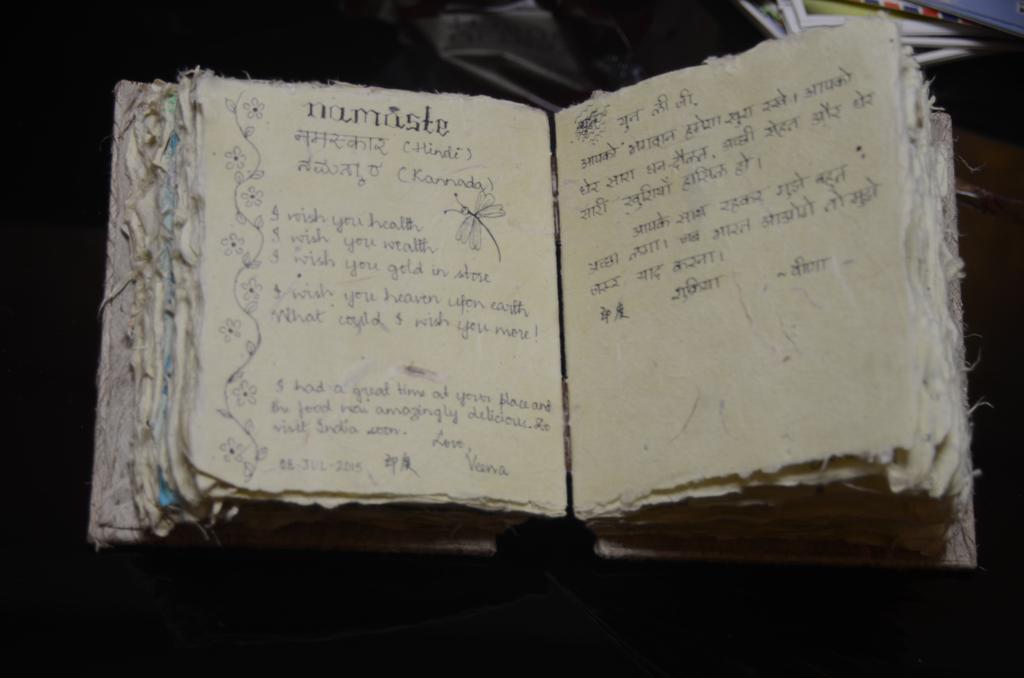 namaste
नमस्कार (Hindi)
ನಮಸ್ಕಾರ (Kannada)
I wish you health
I wish you wealth
I wish you gold in store
I wish you heaven upon earth
What could I wish you more!
I had a great time at your place and
the food was amazingly delicious. Do
visit India soon.
Love,
Veena
08-JUL-2015 印度
युन ली जी,
आपको भगवान हमेशा खुश रखे। आपको
ढेर सारा धन-दौलत, अच्छी सेहत और ढेर
सारी खुशियाँ हासिल हो।
आपके साथ रहकर मुझे बहुत
अच्छा लगा। जब भारत आओगे तो मुझे
जरूर याद करना।
शुक्रिया ~वीणा~
印度